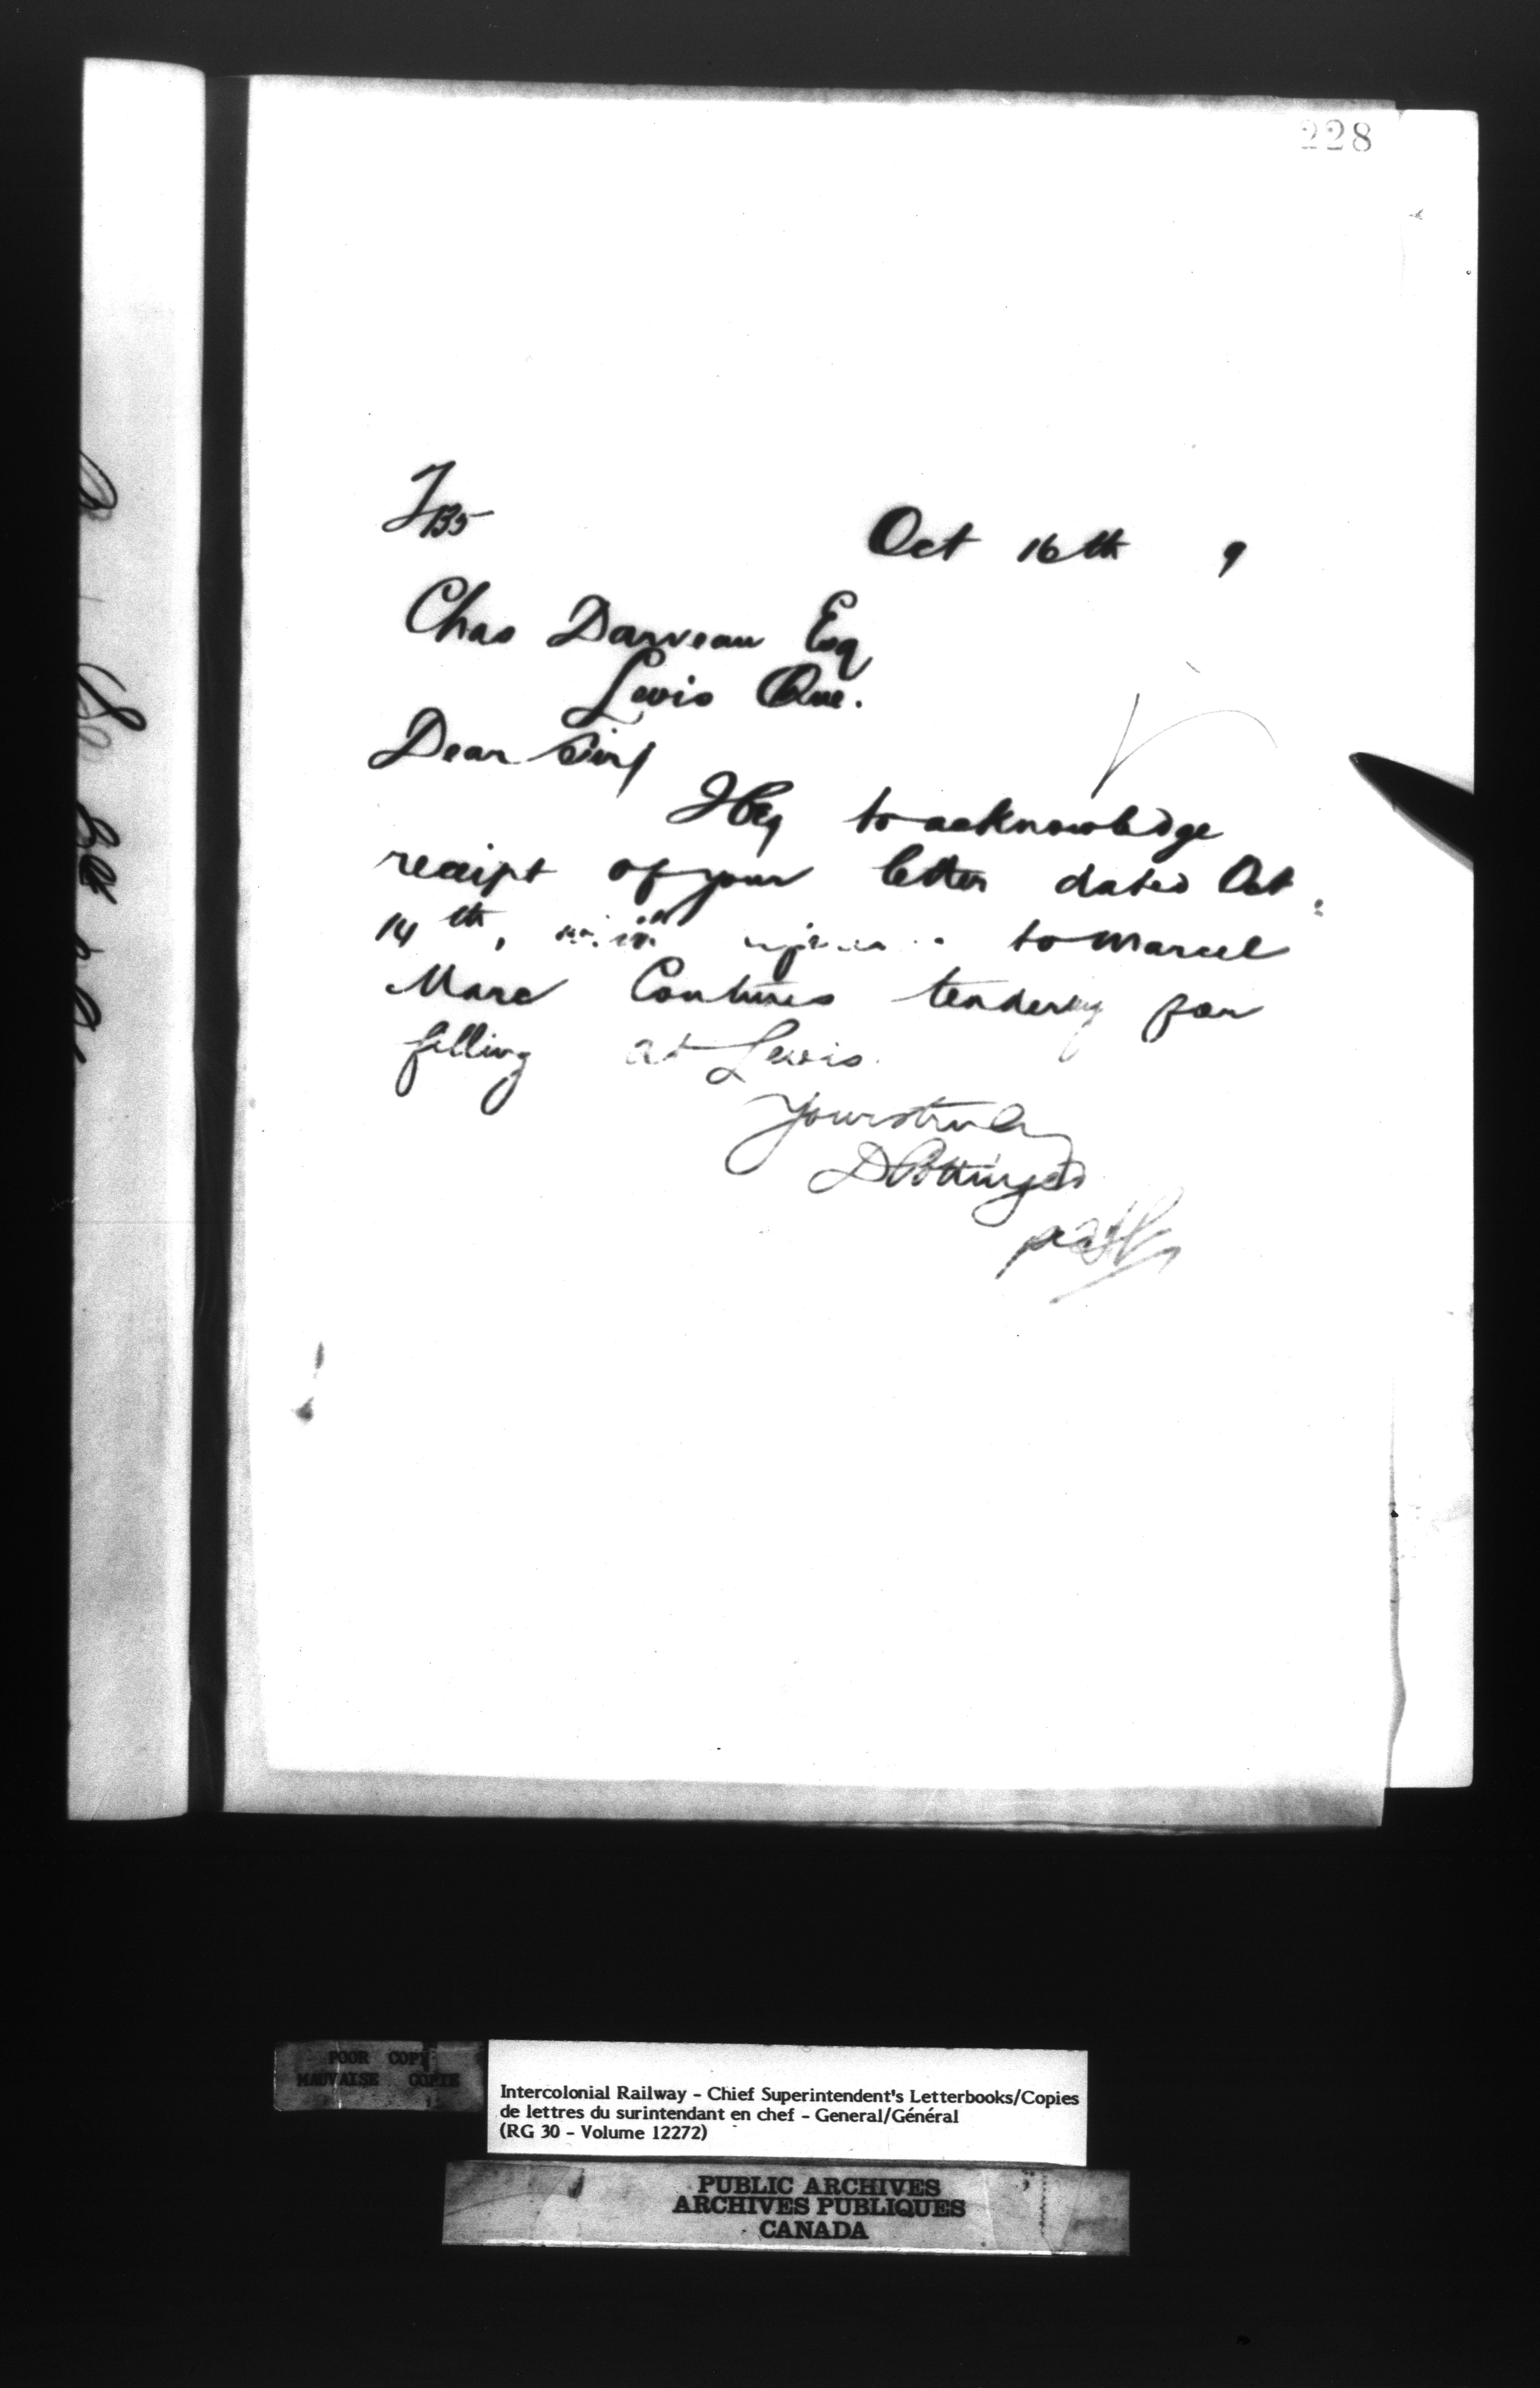 228
Oct 16th 9
Chas Darveau Esq
Levis Que.
Dear Sir/
I beg to acknowledge
receipt of your letter dated Oct
14th, to Marcel
Marc Coutures tender for
filling at Levis.
Yours truly
D Pottinger
POOR COPY
MAUVAISE COPIE
Intercolonial Railway - Chief Superintendent's Letterbooks/Copies
de lettres du surintendant en chef - General/Général
(RG 30 - Volume 12272)
PUBLIC ARCHIVES
ARCHIVES PUBLIQUES
CANADA